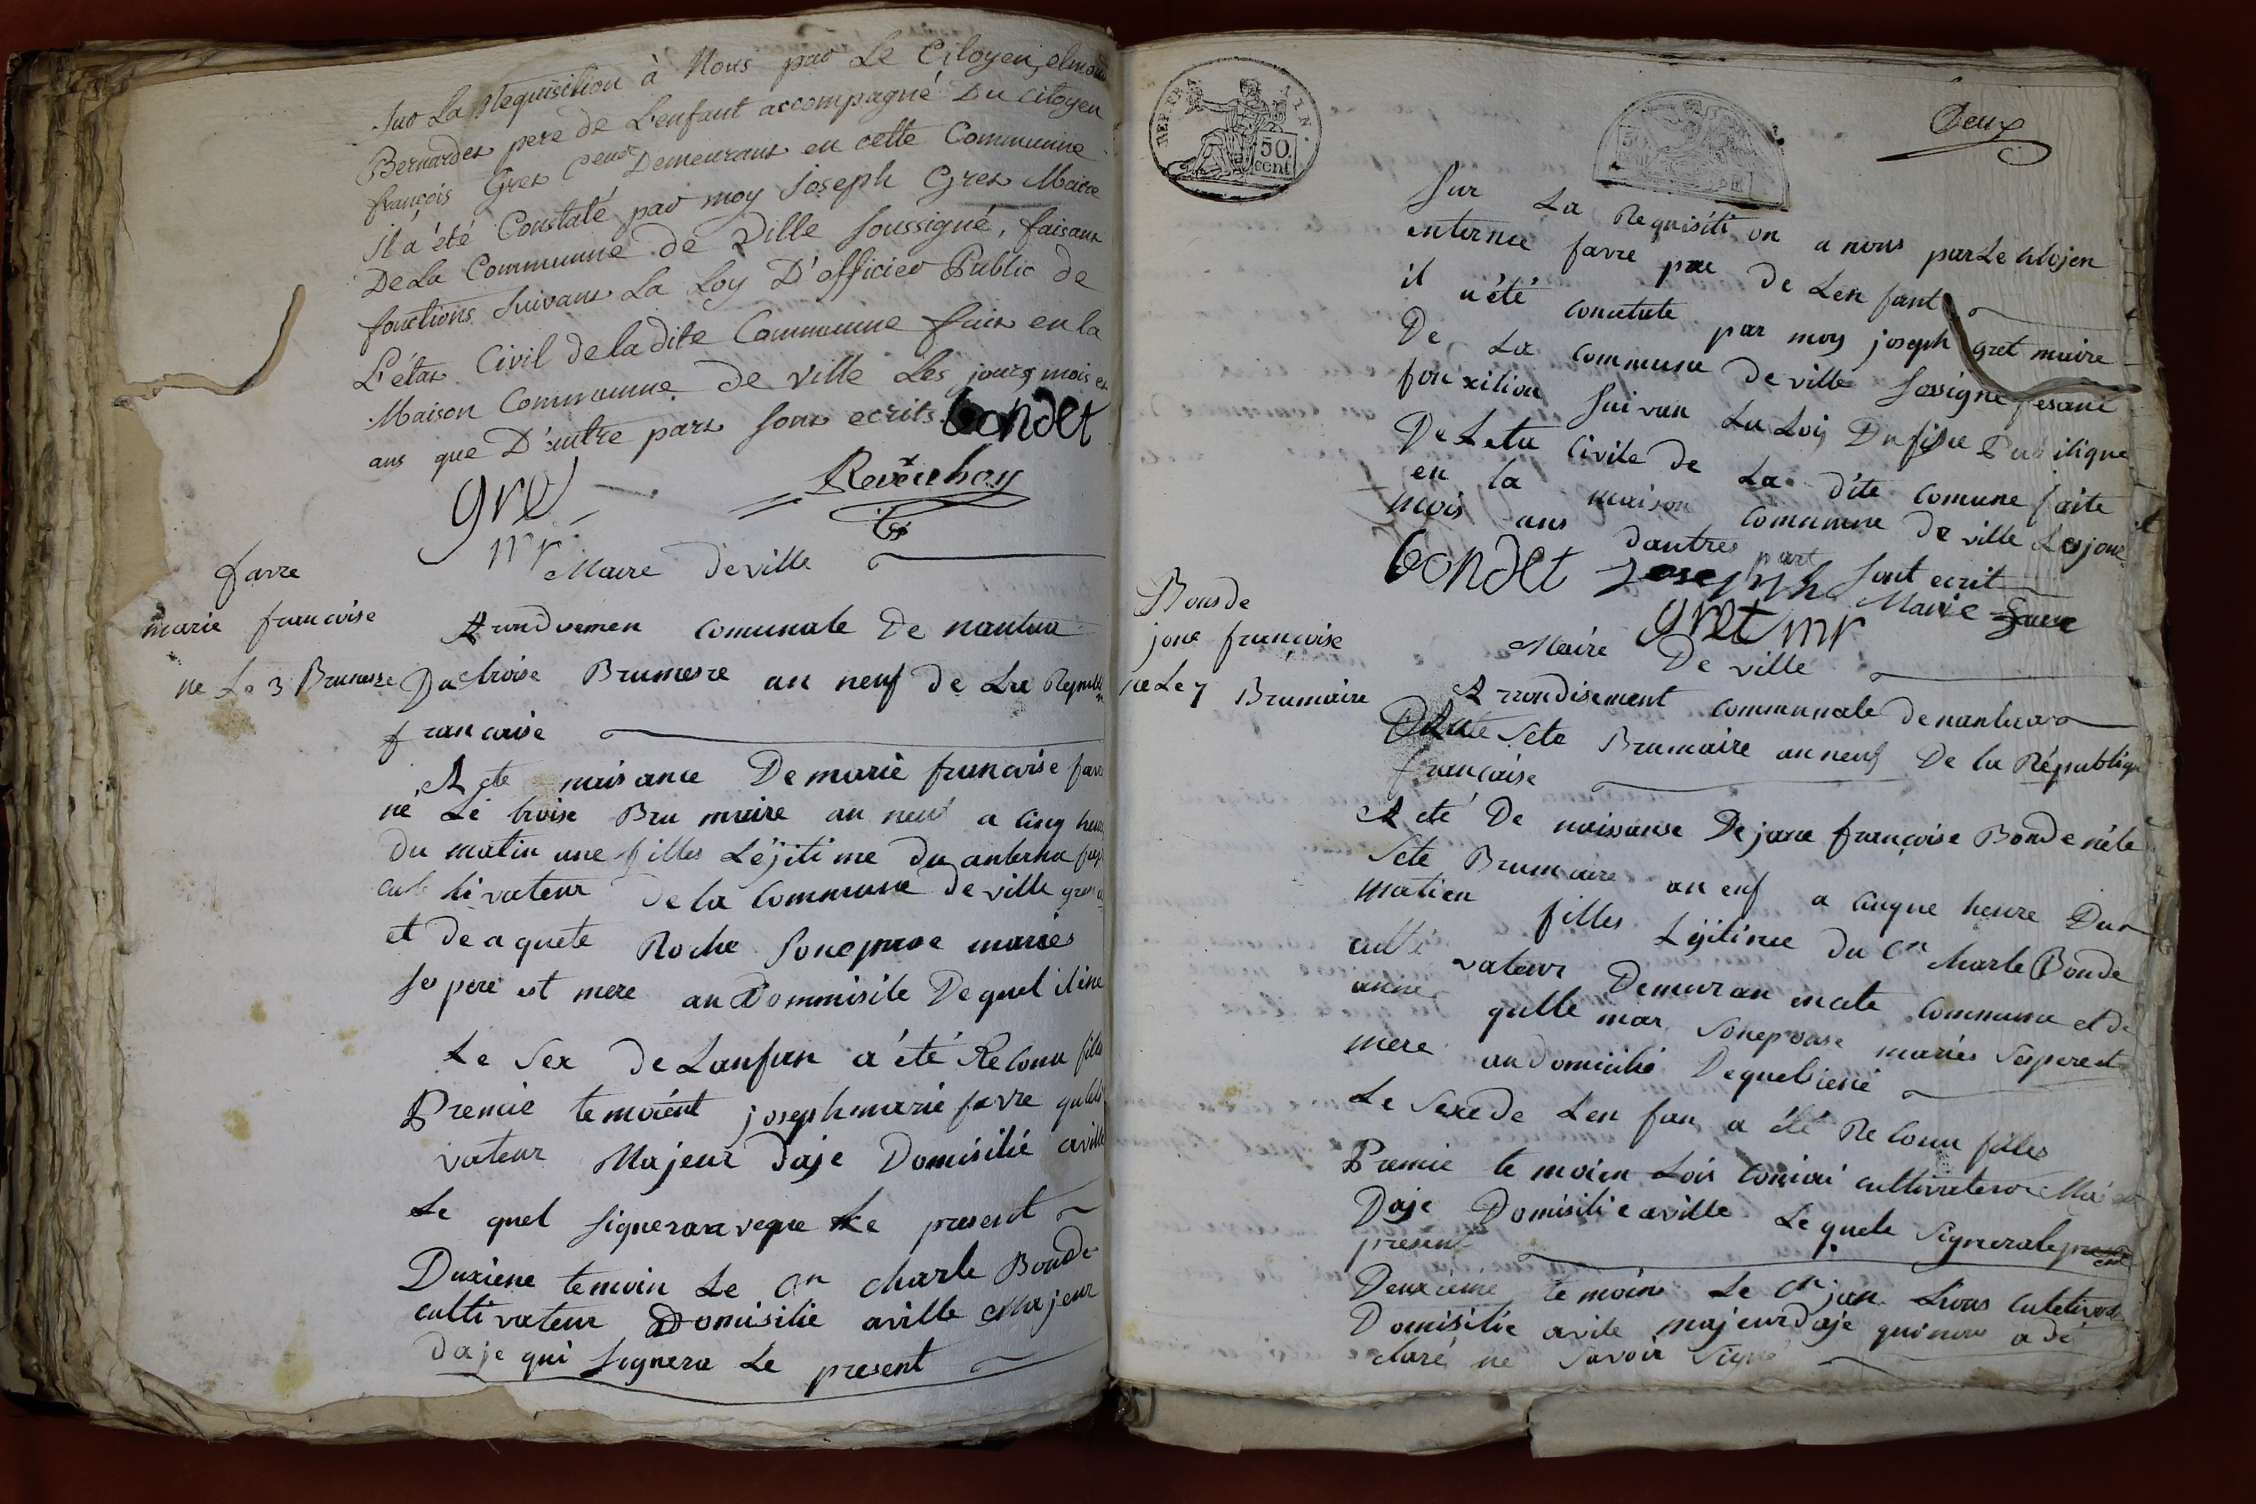 Sur La Requisition à Nous par Le Citoyen
Bernardet pere de L'enfant accompagné Du citoyen
françois Gret Demeurant en cette Commune
il a été Constaté par moy Joseph Gret Maire
De La Commune de Ville soussigné, faisant
fonctions suivant La Loy D'officier Public de
L'état Civil de la dite Commune fait en la
Maison Commune de Ville Les jours mois et
ans que D'autre part sont ecrits. bondet
gre Reverchon
mr
Maire de ville
favre
marie francoise
ne Le 3 Brumere
Arondremen comunale De nantua
Du troise Brumesre an neuf de La Republi
francaise
Acte naisance De marie francoise favr
né Le troise Bru maire an neuf a cinq heur
Du matin une filles Lejitime du anterna
cultivateur de la Commune de ville
et de aquete Roche son epouse mariés
ses pere et mere au Dommisile Dequel il ene
Le Sex de Lanfan a été Reconu filles
Premie temoient joseph marie favre qulti
vateur Majeur daje Domisilié aville
Le quel signera aveque Le present
Duxiene temoin Le Cn charle Bonde
cultivateur Domisilie aville Majeur
daje qui signera Le present
REP. FRA. 7 IN.
50
cent
Deux
Sur La Requisition a nous par Le sitojen
enterne favre pere de Len fant
il a été constate par moy joseph gret maire
De La commune de ville sosigné fesant
fonxition suivan La Loy Publique
De Leta Civile de La dite comune faite
en la maison comunne de ville Les jour
mois ans dautres part sont ecrit
bondet joseph Marie Favre
gret mr
Maire De ville
Bonde
jone françoise
ne Le 7 Brumaire
Arrondisement communale de nantua
Du Sete Brumaire an neuf De la Républiqu
francaise
Acté De naisanse De jane françoise Bonde né le
Sete Brumaire an enf a cinque heure Du
matien filles Lejitime du Cn charle Bonde
culti vateur Demuran encete commune et de
anne qulle mar son epouse mariés ses pere et
mere au domicilié Dequel iené
Le Sexe de Len fan a été Reconu filles
Premie temoien Lois cultivateur Ma
Daje Domisilie aville Le quele Signera le present
present
Deuxieme temoins Le Cn jan cultivat
Domisilie avile majeur daje qui nou a dé
claré ne Savoir Signé